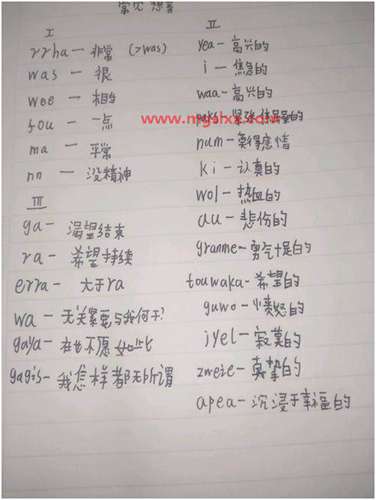 常见 想音
I
rrha — 非常 (>was)
was — 很
wee — 相当
fou — 一点
ma — 平常
nn — 没精神
III
ga — 渴望结束
ra — 希望持续
erra — 大于ra
wa — 无关紧要与我何干?
gaya — 在也不愿如此
gagis — 我怎样都无所谓
II
yea — 高兴的
i — 焦急的
waa — 高兴的
num — 莫得感情
ki — 认真的
wol — 热血的
au — 悲伤的
granme — 勇气十足的
touwaka — 希望的
guwo — 愤怒的
jyel — 寂寞的
zweie — 真挚的
apea — 沉浸于幸福的